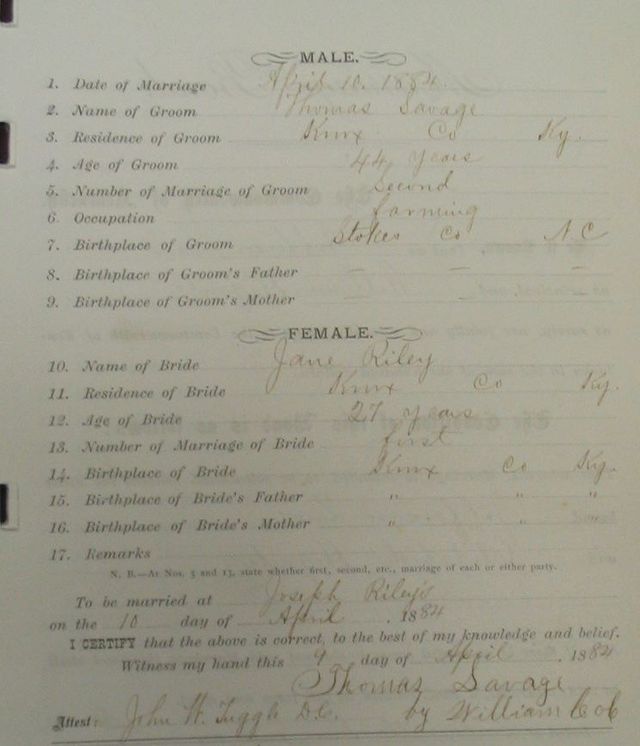 MALE.
1. Date of Marriage April 10. 1884.
2. Name of Groom Thomas Savage
3. Residence of Groom Knox Co Ky.
4. Age of Groom 44 years
5. Number of Marriage of Groom Second
6. Occupation farming
7. Birthplace of Groom Stokes Co N.C
8. Birthplace of Groom's Father — — —
9. Birthplace of Groom's Mother — — —
FEMALE.
10. Name of Bride Jane Riley
11. Residence of Bride Knox Co Ky.
12. Age of Bride 27 years
13. Number of Marriage of Bride first
14. Birthplace of Bride Knox Co Ky.
15. Birthplace of Bride's Father " " "
16. Birthplace of Bride's Mother " " "
17. Remarks
N. B.—At Nos. 5 and 13, state whether first, second, etc., marriage of each or either party.
To be married at Joseph Riley's
on the 10 day of April . 1884
I CERTIFY that the above is correct, to the best of my knowledge and belief.
Witness my hand this 9 day of April . 1884
Thomas Savage
Attest: John H. D.C. by William Cob